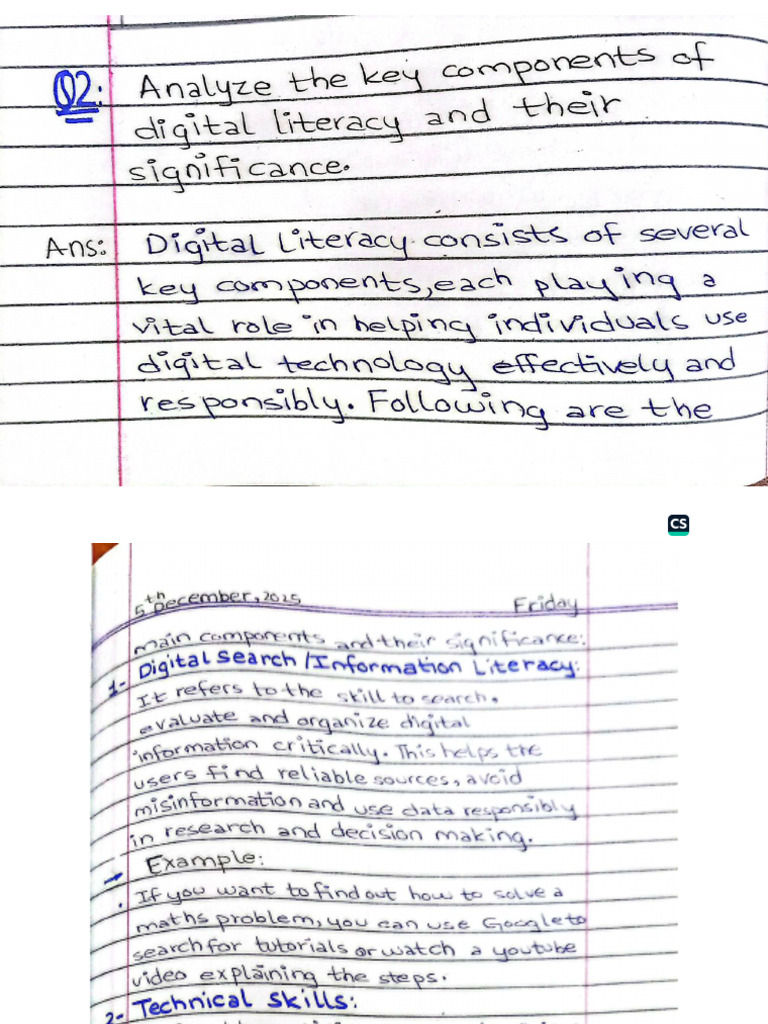 Q2: Analyze the key components of
digital literacy and their
significance.
Ans: Digital Literacy consists of several
key components, each playing a
vital role in helping individuals use
digital technology effectively and
responsibly. Following are the
CS
5th December, 2025 Friday
main components and their significance:
1- Digital Search / Information Literacy:
It refers to the skill to search,
evaluate and organize digital
information critically. This helps the
users find reliable sources, avoid
misinformation and use data responsibly
in research and decision making.
→ Example:
. If you want to find out how to solve a
maths problem, you can use Google to
search for tutorials or watch a youtube
video explaining the steps.
2- Technical Skills: